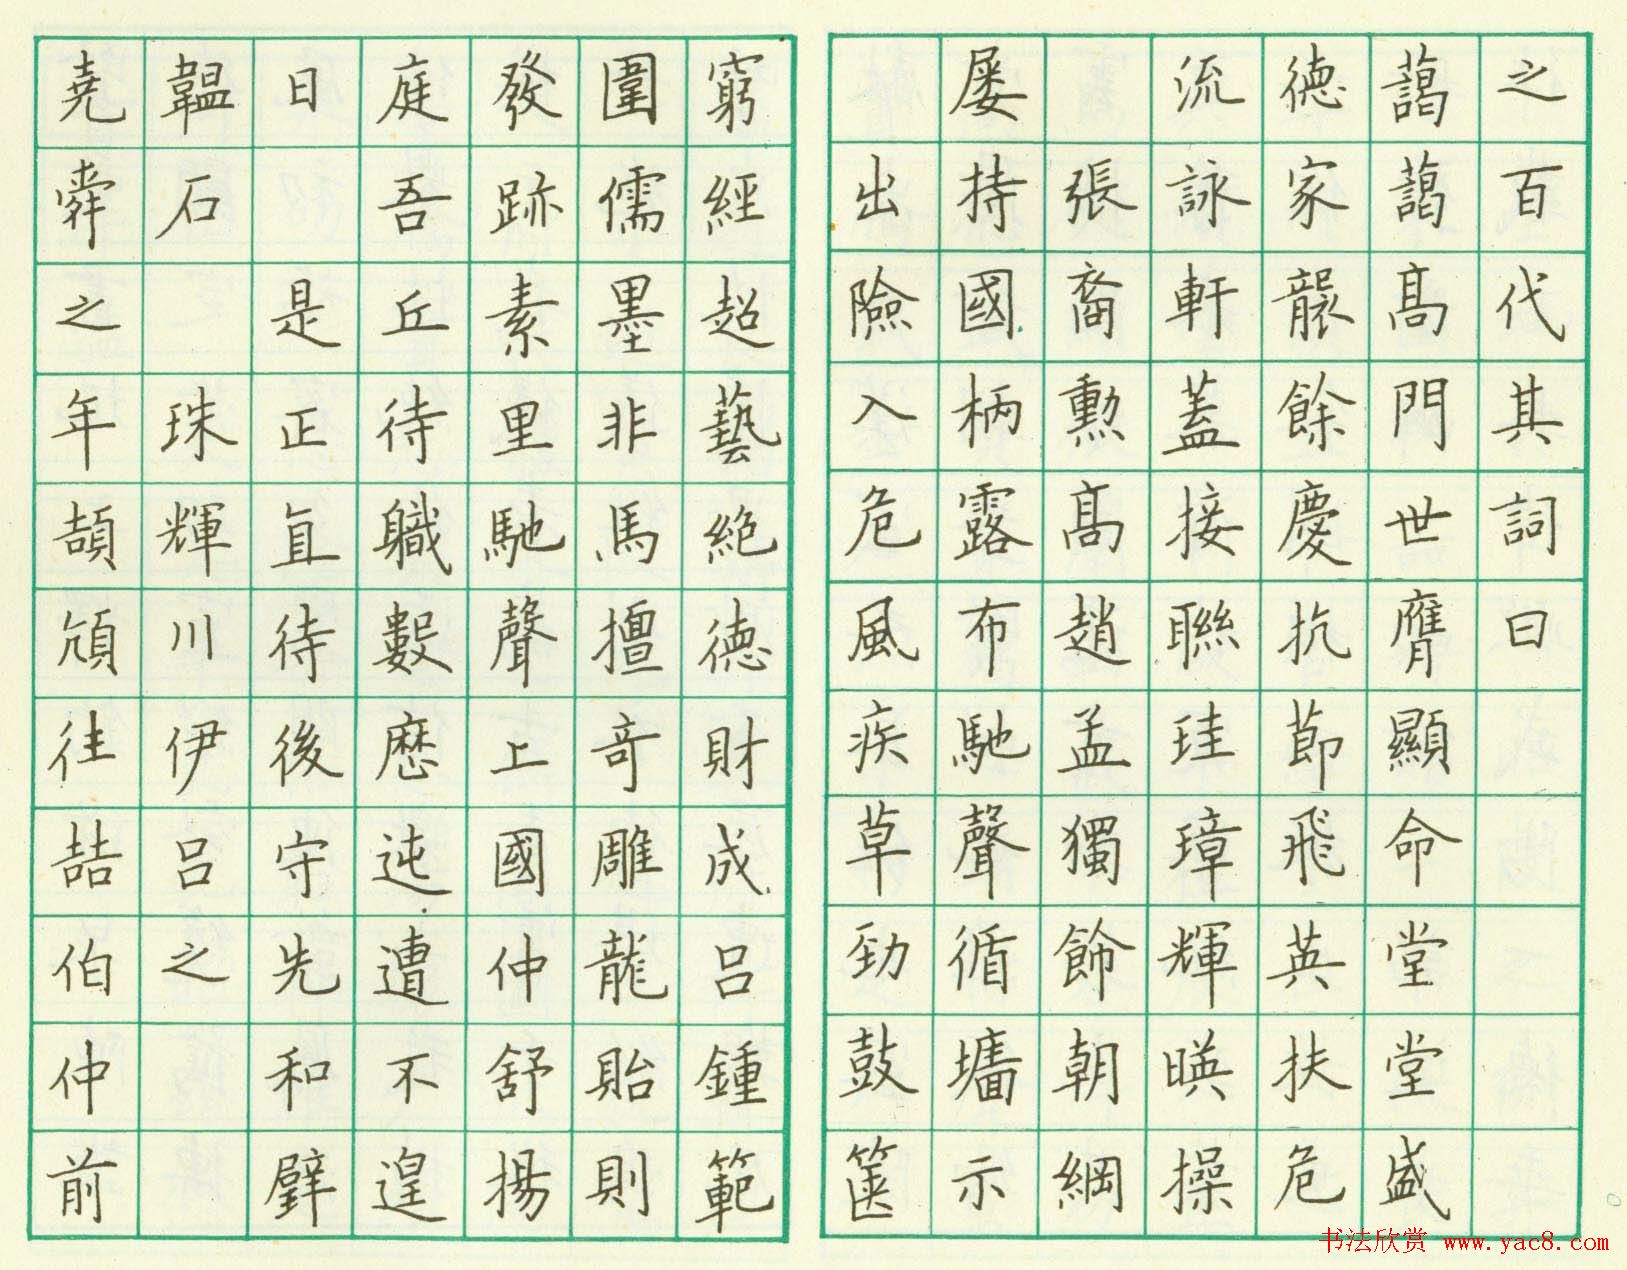 之百代其詞曰
藹藹高門世膺顯命堂堂盛
德家襲餘慶抗節飛英扶危
流詠軒蓋接聯珪璋輝暎操
張裔勲高趙孟獨飾朝綱
屡持國柄露布馳聲循墻示
出險入危風疾草勁鼓篋
窮經超藝絶德財成吕鍾範
圍儒墨非馬擅奇雕龍貽則
發跡素里馳聲上國仲舒揚
庭吾丘待職數歷迍遭不遑
日是正直待後守先和璧
韞石珠輝川伊吕之
堯舜之年頡頏往喆伯仲前
书法欣赏 www.yac8.com